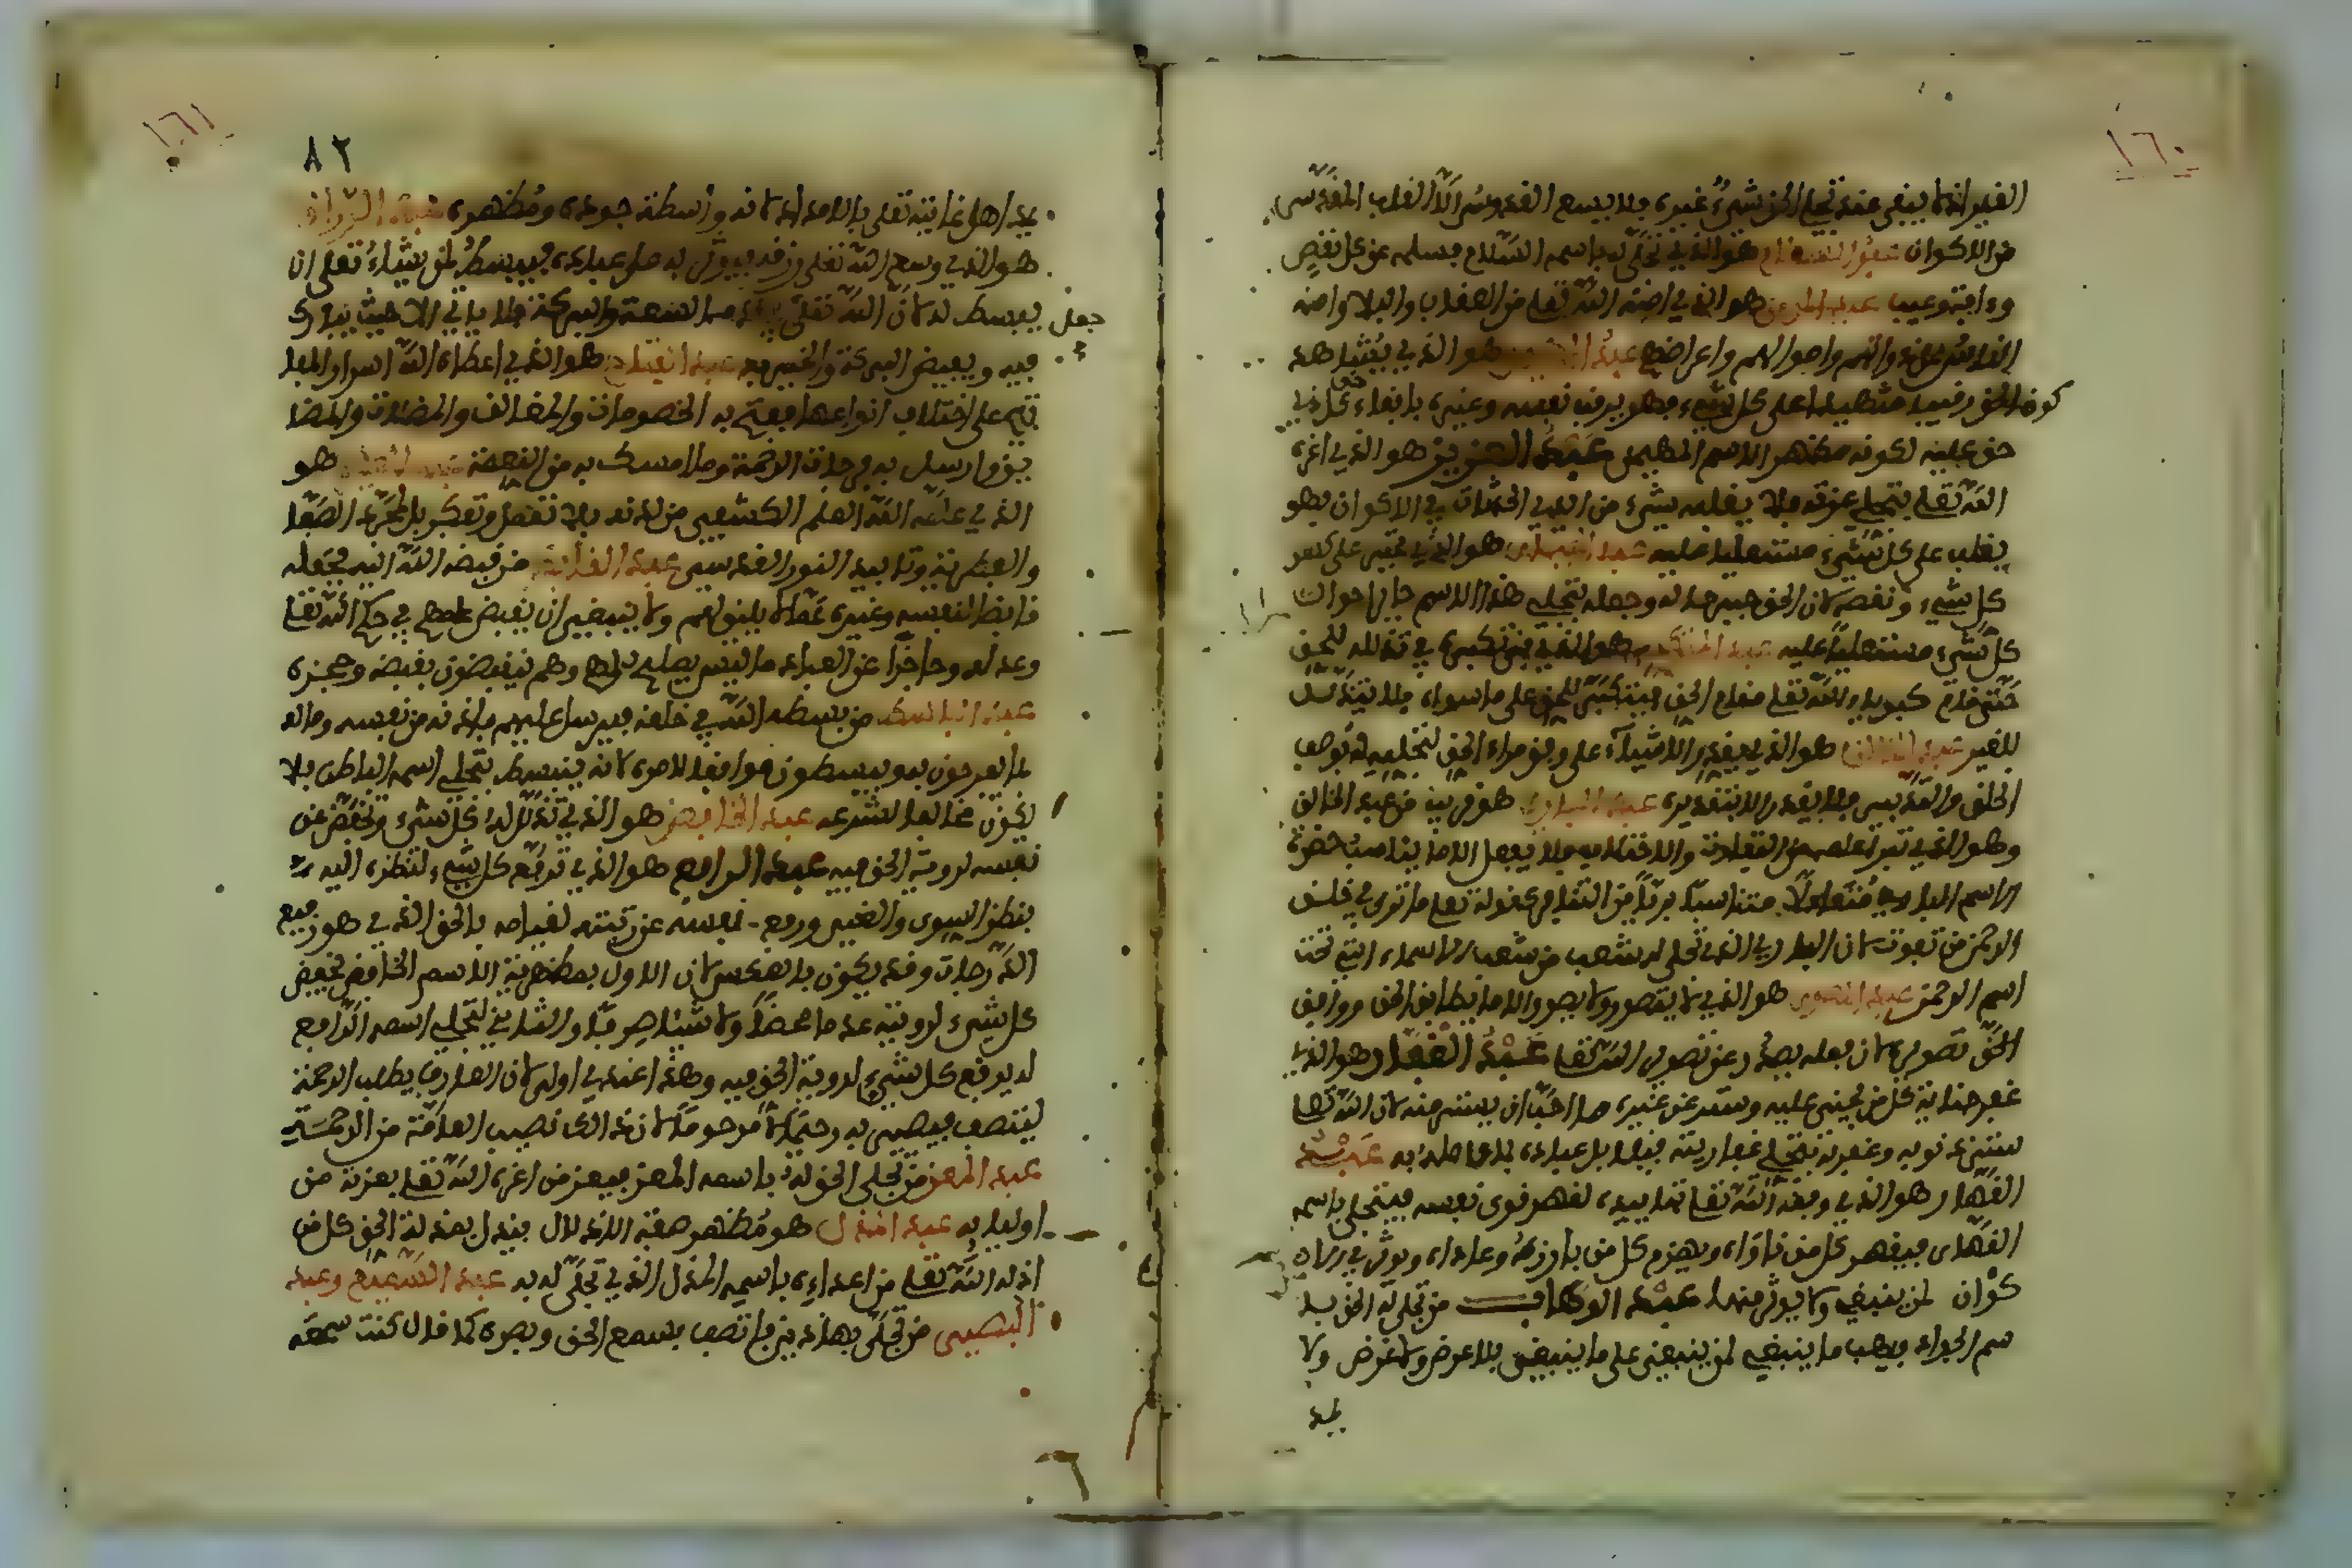 ١٦٠
الغير اذ لا يبقى عند تجلي الحق شيء غيره فلا يسع القدوس الا القلب المقدس
من الاكوان عبد السلام هو الذي تجلى له باسمه السلام فسلمه عن كل نقص
وءافة وعيب عبد المومن هو الذي امنه الله تعلى من العقاب والبلا وامنه
الناس على ذواتهم واموالهم واعراضهم عبد المهيمن هو الذي يشاهد
كون الحق رقيبا شهيدا على كل شيء فهو يرقب نفسه وغيره بايفاء حق كل ذي
حق عليه لكونه مظهر الاسم المهيمن عبد العزيز هو الذي اعزه
الله تعلى بتجلي عزته فلا يغلبه شيء من ايدي الحدثان في الاكوان وهو
يغلب على كل شيء مستعليا عليه عبد الجبار هو الذي يجبر على كسر
كل شيء ونقصه لان الحق جبر حاله وجعله بتجلي هذا الاسم جابرا حوال
كل شيء مستعليا عليه عبد المتكبر هو الذي فنى تكبره في تذلله للحق
حتى قام كبرياء الله تعلى مقام الحق فيتكبر للحق على ما سواه فلا يتذلل
للغير عبد الخالق هو الذي يقدر الاشياء على وفق مراد الحق لتجليه له بوصف
الخلق والتقدير فلا يقدر الا بتقديره عبد البارئ هو قريب من عبد الخالق
وهو الذي تبرا عمله من التفاوت والاختلاف فلا يفعل الا ما يناسب حضرة
الاسم الباري متعادلا متناسبا بريا من التفاوت كقوله تعلى ما ترى في خلق
الرحمن من تفوت لان الباري الذي تجلى له شعب من شعب الاسماء التي تحت
اسم الرحمن عبد المصور هو الذي لا يتصور ولا يصور الا ما يطابق الحق ووافق
الحق تصويره لان فعله يصدر عن تصوير الله تعلى عبد الغفار هو الذي
غفر جناية كل من يجني عليه وستر عن غيره ما احب ان يستر منه لان الله تعلى
ستر ذنوبه وغفر له بتجلي غفاريته فيعامل عباده بما عامله به عبد
القهار هو الذي وفقه الله تعلى بتاييده لقهر قوى نفسه فيتجلى باسمه
القهار فيقهر كل من ناواه ويهزم كل من بارزه وعاداه ويوثر في الا
كوان لمن ينبغي ولا يوثر منها عبد الوهاب من تجلى له الحق با
سم الجواد فيهب ما ينبغي لمن ينبغي على ما ينبغي بلا عوض ولا غرض ولا
يمد
١٦١
٨٢
يمد اهل عنايته تعلى بالامداد لانه واسطة جوده ومظهره عبد الرزاق
هو الذي وسع الله تعلى رزقه فيوثر به على عباده فيبسط لمن يشاء تعلى ان
يبسط له لان الله تعلى جعل في قدمه السعة والبركة فلا ياتي الا حيث يبارك
فيه ويفيض البركة والخير فيه عبد الفتاح هو الذي اعطاه الله اسرار المفا
تيح على اختلاف انواعها ففتح به الخصومات والمغالق والمعضلات والمضا
يق وارسل به فتوحات الرحمة وما امسك به من النعمة عبد العليم هو
الذي علمه الله العلم الكشفي من لدنه بلا تفضل وتفكر بل بمجرد الصفا
والفطرية وتاييد النور القدسي عبد القابض من قبضه الله اليه فجعله
قابضا لنفسه وغيره عما لا يليق بهم ولا ينبغي ان يفيض عليهم في حكم الله تعلى
وعدله وحاجزا عن العباد ما ليس يصلح بهم وهم ينقبضون بقبضه وحجزه
عبد الباسط من بسطه الله في خلقه فيرسل عليهم باذنه من نفسه وماله
ما يفرحون به ويبسطون موافقا لامره لانه ينبسط بتجلي اسمه الباسط فلا
يكون مخالفا لشرعه عبد الخافض هو الذي تذلل له كل شيء ويخفض عن
نفسه لروية الحق فيه عبد الرافع هو الذي ترفع كل شيء لنظره اليه
بنظر السوى والغير ورفع نفسه عن رتبته لقيامه بالحق الذي هو رفيع
الدرجات وقد يكون بالعكس لان الاول بمظهرية الاسم الخافض يخفض
كل شيء لرويته عدما محضا ولا شيئا صرفا والثاني لتجلي اسمه الرافع
له يرفع كل شيء لروية الحق فيه وهذا عندي اولى لان العارف يطلب الرحمة
ليتصف فيصير به رحيما لا مرحوما لان ذلك نصيب العامة من الرحمة
عبد المعز من تجلى الحق له باسمه المعز فيعز من اعزه الله تعلى بعزته من
اوليايه عبد المذل هو مظهر صفة الاذلال فيذل بمذلة الحق كل من
اذله الله تعلى من اعدائه باسمه المذل الذي تجلى له به عبد السميع وعبد
البصير من تجلى بهاذين فاتصف بسمع الحق وبصره كما قال كنت سمعه
جعل